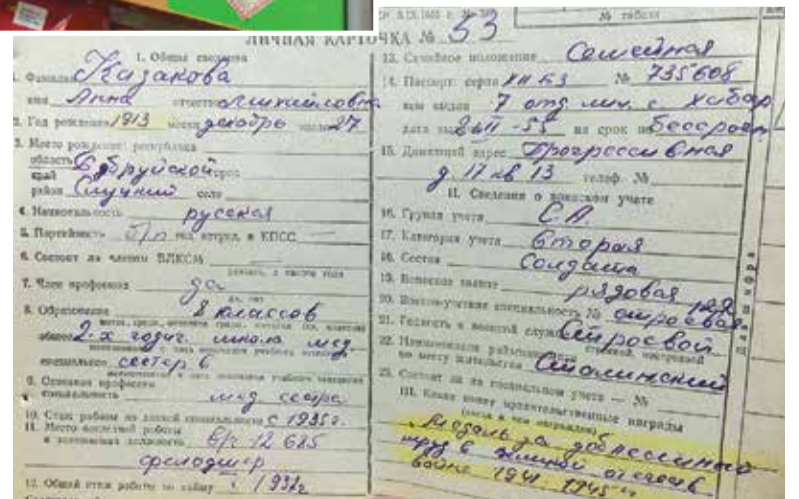 ЛИЧНАЯ КАРТОЧКА № 53
№ табеля
I. Общие сведения
1. Фамилия Казакова
имя Анна отчество Михайловна
2. Год рождения 1913 месяц декабрь число 27
3. Место рождения: республика
область Бобруйской город
край
район Слуцкий село
4. Национальность русская
5. Партийность б/п год вступл. в КПСС —
6. Состоит ли членом ВЛКСМ —
7. Член профсоюза да
да, нет
8. Образование 8 классов
общее 2-х годич. школа мед.
специальное сестер
9. Основная профессия
специальность мед сестра
10. Стаж работы по данной специальности с 1935 г.
11. Место последней работы
и занимаемая должность в/ч 12685
12. Общий стаж работы по найму с 1932
13. Семейное положение Семейная
14. Паспорт: серия XII БЗ № 735608
кем выдан 7 отд мил. г. Хабар
на срок Бессроч
15. Домашний адрес Прогрессивная
д. 17 кв 13 телеф. №
II. Сведения о воинском учете
16. Группа учета С.А.
17. Категория учета вторая
18. Состав Солдаты
19. Воинское звание рядовая
20. Военно-учетная специальность №
21. Годность к военной службе Строевой
22. Наименование
по месту жительства Сталинский
23. Состоит ли на специальном учете — №
III. Какие имеет правительственные награды
(когда и чем награжден)
Медаль за доблестный
труд в великой отечеств
войне 1941-1945 г